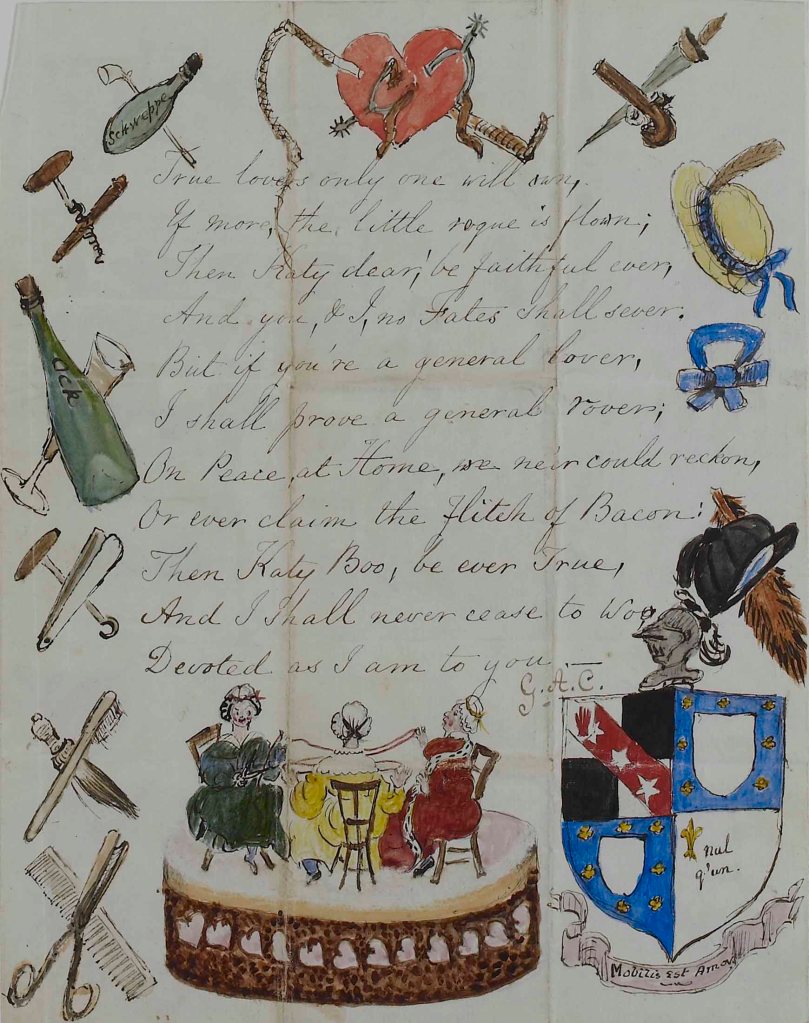 Schweppe
True lovers only one will own,
If more, the little rogue is flown;
Then Katy dear, be faithful ever,
And you, & I, no Fates shall sever.
But if you're a general lover,
I shall prove a general rover;
ock
On Peace, at Home, we ne'er could reckon,
Or ever claim the Flitch of Bacon!
Then Katy Boo, be ever True,
And I shall never cease to Woo
Devoted as I am to you.
G.A.C.
nul
q'un.
Mobilis Est Amor